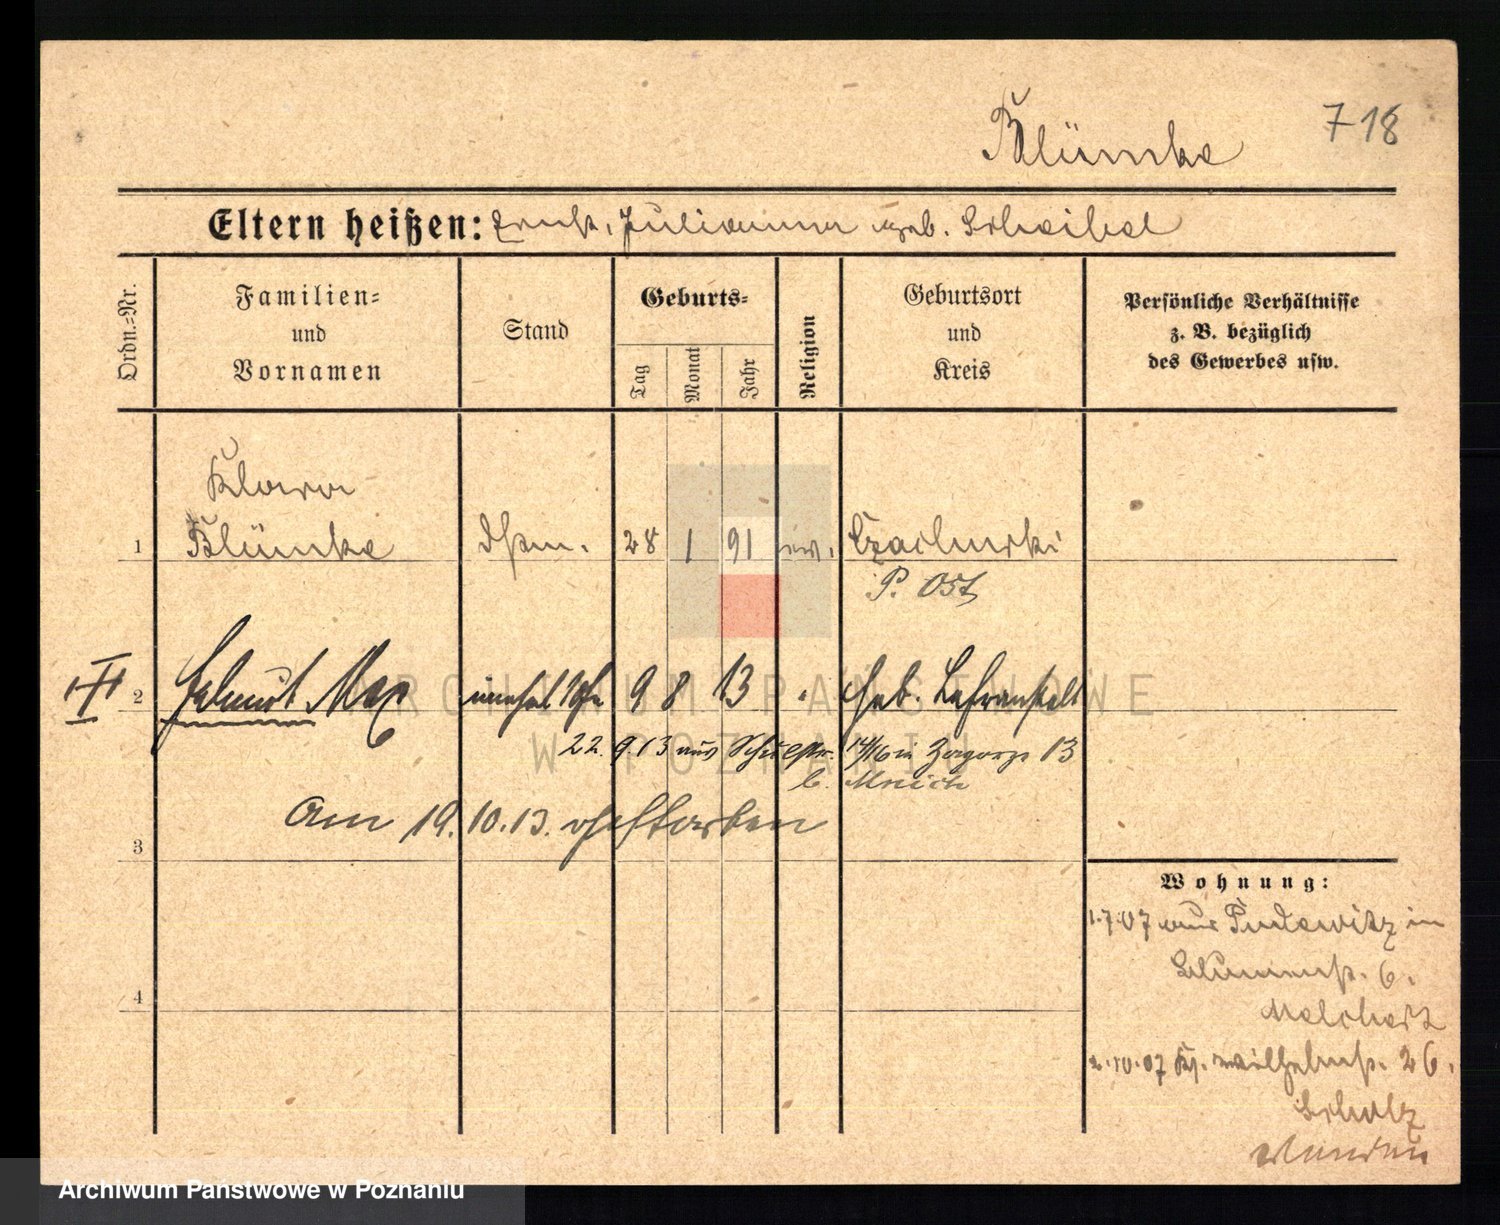 Blümke
718
Eltern heißen: Ernst, Julianna geb. Scheibel
Ordn.-Nr.
Familien-
und
Vornamen
Stand
Geburts-
Tag
Monat
Jahr
Religion
Geburtsort
und
Kreis
Persönliche Verhältnisse
z. B. bezüglich
des Gewerbes usw.
Klara
1 Blümke 28 1 91 ev.
P. Ost
2 Helmut Max unehel. 9 8 13 " Geb.
22. 9. 13 aus 14/16 in Zagorze 13
b. Mnich
Am 19. 10. 13. gestorben
3
4
Wohnung:
1.7.07 aus Pudewitz in
Blumenst. 6.
Melchert
2.10.07 Ks. Wilhelmst. 26.
Scholz
ARCHIWUM PAŃSTWOWE
W POZNANIU
Archiwum Państwowe w Poznaniu